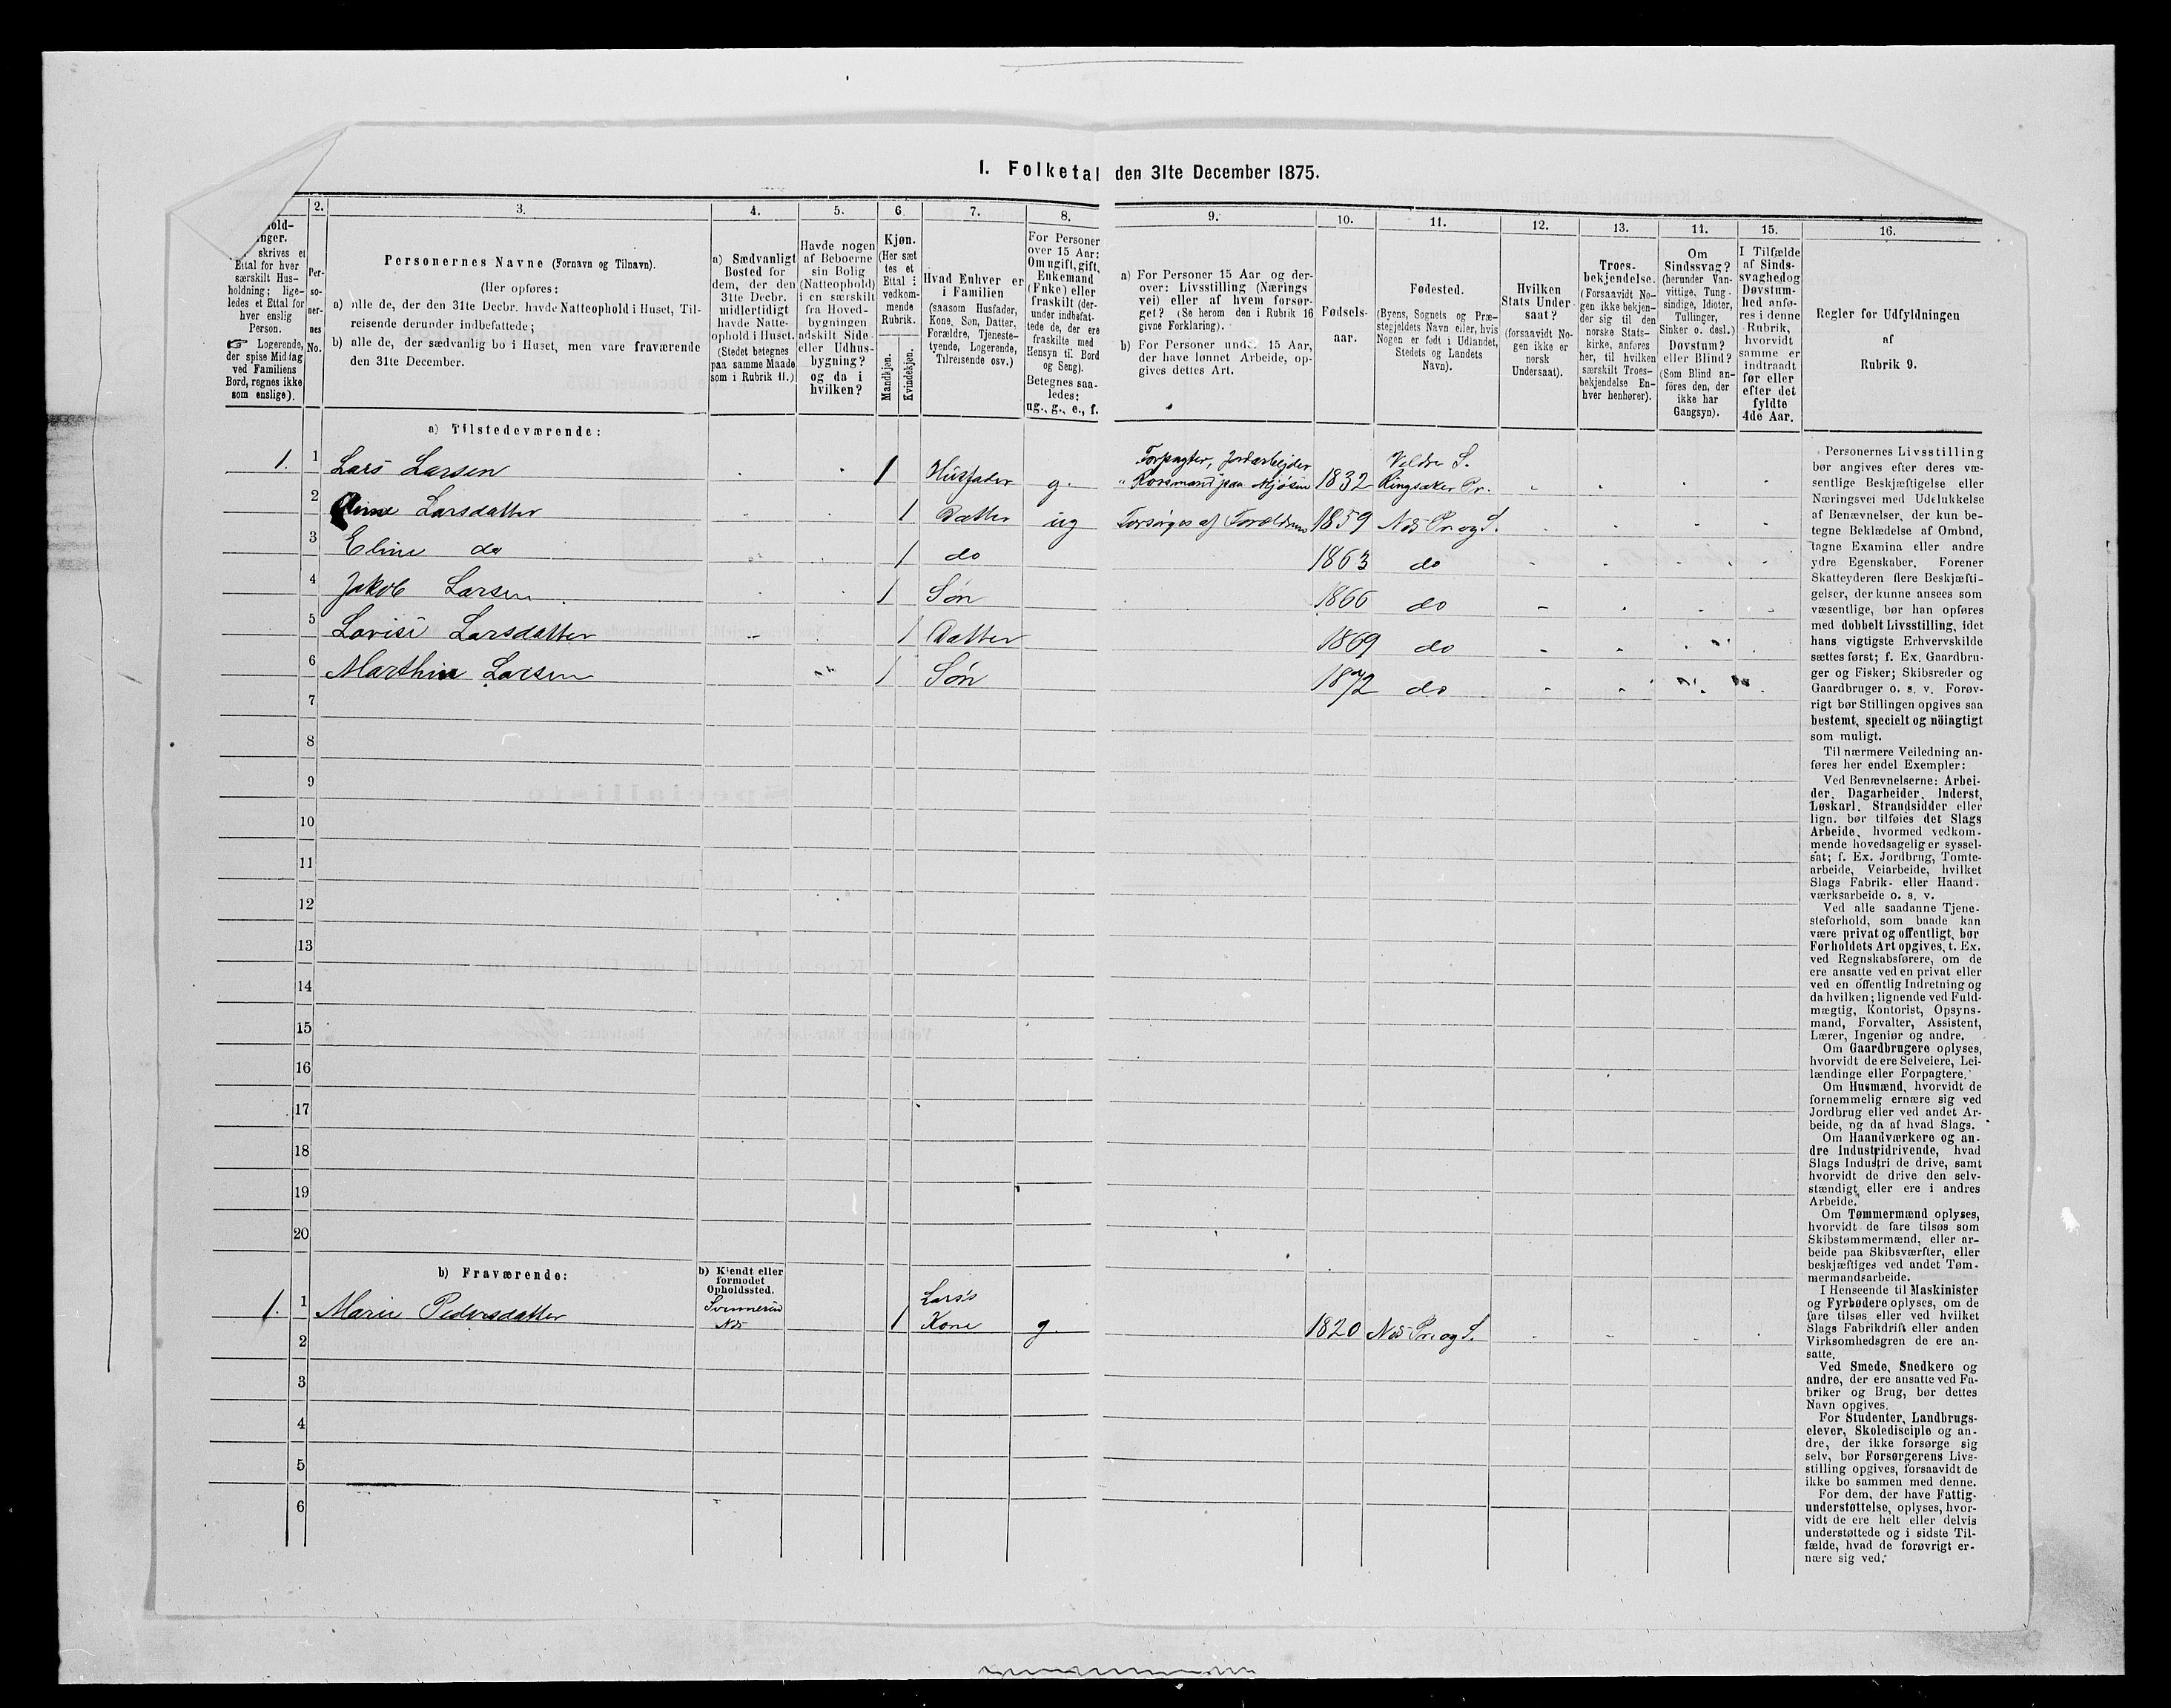 I. Folketal den 31te December 1875.
2. 3. 4. 5. 6. 7. 8. 9. 10. 11. 12. 13. 14. 15. 16.
hold-
nger.
skrives et
Ettal for hver
særskilt Hus-
holdning; lige-
ledes et Ettal for
hver enslig
Person.
☞ Logerende,
der spise Middag
ved Familiens
Bord, regnes ikke
som enslige).
Per-
so-
ner-
nes
No.
Personernes Navne (Fornavn og Tilnavn).
(Her opføres:
a) alle de, der den 31te Decbr. havde Natteophold i Huset, Til-
reisende derunder indbefattede;
b) alle de, der sædvanlig bo i Huset, men vare fraværende
den 31te December.
a) Sædvanligt
Bosted for
dem, der den
31te Decbr.
midlertidigt
havde Natte-
ophold i Huset.
(Stedet betegnes
paa samme Maade
som i Rubrik 11.)
Havde nogen
af Beboerne
sin Bolig
(Natteophold)
i en særskilt
fra Hoved-
bygningen
adskilt Side-
eller Udhus-
bygning?
og da i
hvilken?
Kjøn.
(Her sæt
tes et
Ettal i
vedkom-
mende
Rubrik.
Mandkjøn.
Kvindekjøn.
Hvad Enhver er
i Familien
(saasom Husfader,
Kone, Søn, Datter,
Forældre, Tjeneste-
tyende, Logerende,
Tilreisende osv.)
For Personer
over 15 Aar:
Om ugift, gift,
Enkemand
(Enke) eller
fraskilt (der-
under indbefat-
tede de, der ere
fraskilte med
Hensyn til Bord
og Seng).
Betegnes saa-
ledes:
ug., g., e., f.
a) For Personer 15 Aar og der-
over: Livsstilling (Nærings
vei) eller af hvem forsør-
get? (Se herom den i Rubrik 16
givne Forklaring).
b) For Personer under 15 Aar,
der have lønnet Arbeide, op-
gives dettes Art.
Fødsels-
aar.
Fødested.
(Byens, Sognets og Præ-
stegjeldets Navn eller, hvis
Nogen er født i Udlandet,
Stedets og Landets
Navn).
Hvilken
Stats Under-
saat?
(forsaavidt No-
gen ikke er
norsk
Undersaat).
Troes-
bekjendelse.
(Forsaavidt No-
gen ikke bekjen-
der sig til den
norske Stats-
kirke, anføres
her, til hvilken
særskilt Troes-
bekjendelse En-
hver henhører).
Om
Sindssvag?
(herunder Van-
vittige, Tung-
sindige, Idioter,
Tullinger,
Sinker o. desl.)
Døvstum?
eller Blind?
(Som Blind an-
føres den, der
ikke har
Gangsyn).
I Tilfælde
af Sinds-
svaghed og
Døvstum-
hed anfø-
res i denne
Rubrik,
hvorvidt
samme er
indtraadt
før eller
efter det
fyldte
4de Aar.
Regler for Udfyldningen
af
Rubrik 9.
a) Tilstedeværende:
1. 1 Lars Larsen 1 Husfader g. Forpagter, Jordarbejder 1832 Veldre S.
" Rorsmand paa Mjøsen Ringsaker Pr.
2 Larsdatter 1 Datter ug Forsørges af Forældrene 1859 Næs Pr. og S.
3 Eline do 1 do 1863 do
4 Jakob Larsen 1 Søn 1866 do
5 Lovise Larsdatter 1 Datter 1869 do
6 Marthin Larsen 1 Søn 1872 do
7
8
9
10
11
12
13
14
15
16
17
18
19
20
b) Fraværende:
b) Kjendt eller
formodet
Opholdssted.
1. 1 Marie Pedersdatter Næs 1 Lars's
Kone g. 1820 Næs Pr. og S.
2
3
4
5
6
Personernes Livsstilling
bør angives efter deres væ-
sentlige Beskjæftigelse eller
Næringsvei med Udelukkelse
af Benævnelser, der kun be-
tegne Beklædelse af Ombud,
tagne Examina eller andre
ydre Egenskaber. Forener
Skatteyderen flere Beskjæfti-
gelser, der kunne ansees som
væsentlige, bør han opføres
med dobbelt Livsstilling, idet
hans vigtigste Erhvervskilde
sættes først; f. Ex. Gaardbru-
ger og Fisker; Skibsreder og
Gaardbruger o. s. v. Forøv-
rigt bør Stillingen opgives saa
bestemt, specielt og nöiagtigt
som muligt.
Til nærmere Veiledning an-
føres her endel Exempler:
Ved Benævnelserne: Arbei-
der, Dagarbeider, Inderst,
Løskarl, Strandsidder eller
lign. bør tilføies det Slags
Arbeide, hvormed vedkom-
mende hovedsagelig er syssel-
sat; f. Ex. Jordbrug, Tomte-
arbeide, Veiarbeide, hvilket
Slags Fabrik- eller Haand-
værksarbeide o. s. v.
Ved alle saadanne Tjene-
steforhold, som baade kan
være privat og offentligt, bør
Forholdets Art opgives, t. Ex.
ved Regnskabsførere, om de
ere ansatte ved en privat eller
ved en offentlig Indretning og
da hvilken; lignende ved Fuld-
mægtig, Kontorist, Opsyns-
mand, Forvalter, Assistent,
Lærer, Ingeniør og andre.
Om Gaardbrugere oplyses,
hvorvidt de ere Selveiere, Lei-
lændinge eller Forpagtere.
Om Husmænd, hvorvidt de
fornemmelig ernære sig ved
Jordbrug eller ved andet Ar-
beide, og da af hvad Slags.
Om Haandværkere og an-
dre Industridrivende, hvad
Slags Industri de drive, samt
hvorvidt de drive den selv-
stændigt eller ere i andres
Arbeide.
Om Tømmermænd oplyses,
hvorvidt de fare tilsøs som
Skibstømmermænd, eller ar-
beide paa Skibsværfter, eller
beskjæftiges ved andet Tøm-
mermandsarbeide.
I Henseende til Maskinister
og Fyrbødere oplyses, om de
fare tilsøs eller ved hvilket
Slags Fabrikdrift eller anden
Virksomhedsgren de ere an-
satte.
Ved Smede, Snedkere og
andre, der ere ansatte ved Fa-
briker og Brug, bør dettes
Navn opgives.
For Studenter, Landbrugs-
elever, Skoledisciple og an-
dre, der ikke forsørge sig
selv, bør Forsørgerens Livs-
stilling opgives, forsaavidt de
ikke bo sammen med denne.
For dem, der have Fattig-
understøttelse, oplyses, hvor-
vidt de ere helt eller delvis
understøttede og i sidste Til-
fælde, hvad de forøvrigt er-
nære sig ved.